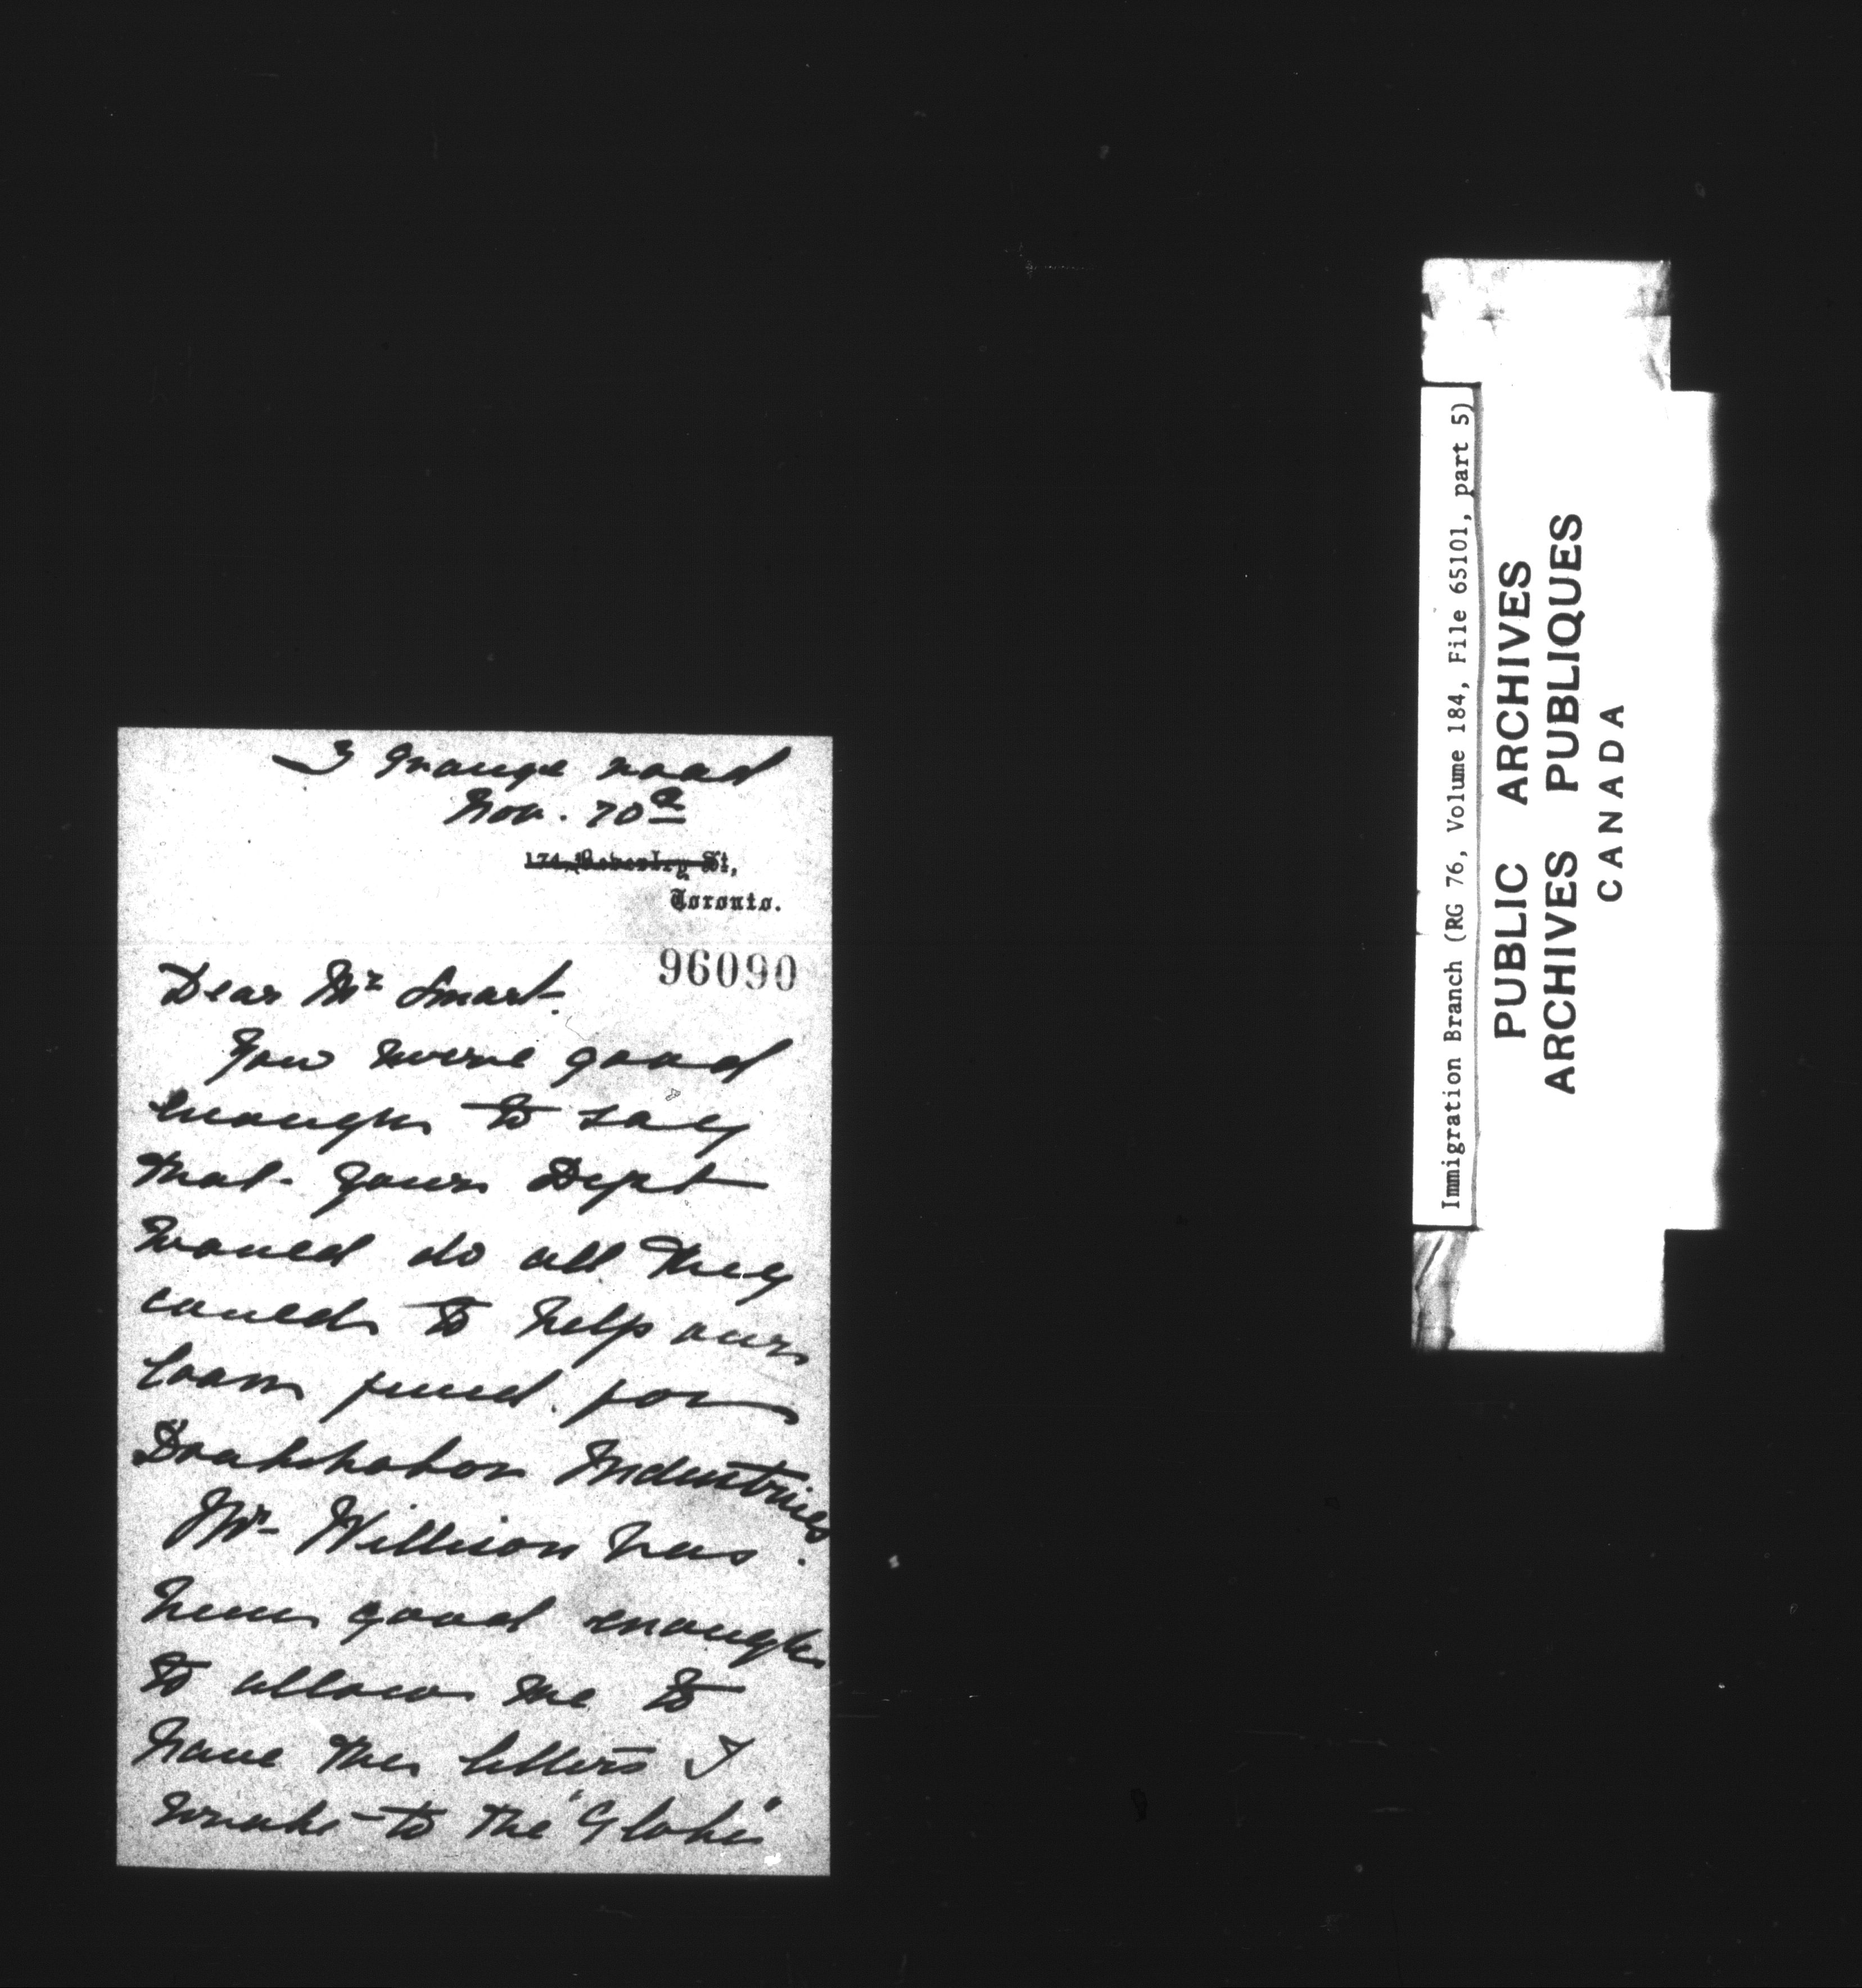 3 Grange road
Nov. 20th
174, Beverley St,
Toronto.
96090
Dear Mr Smart.
You were good
enough to say
that your Dept
would do all they
could to help our
loan fund for
Doukhobor Industries.
Mr Willison has
been good enough
to allow me to
have the letters I
wrote to the "Globe"
Immigration Branch (RG 76, Volume 184, File 65101, part 5)
PUBLIC ARCHIVES
ARCHIVES PUBLIQUES
CANADA